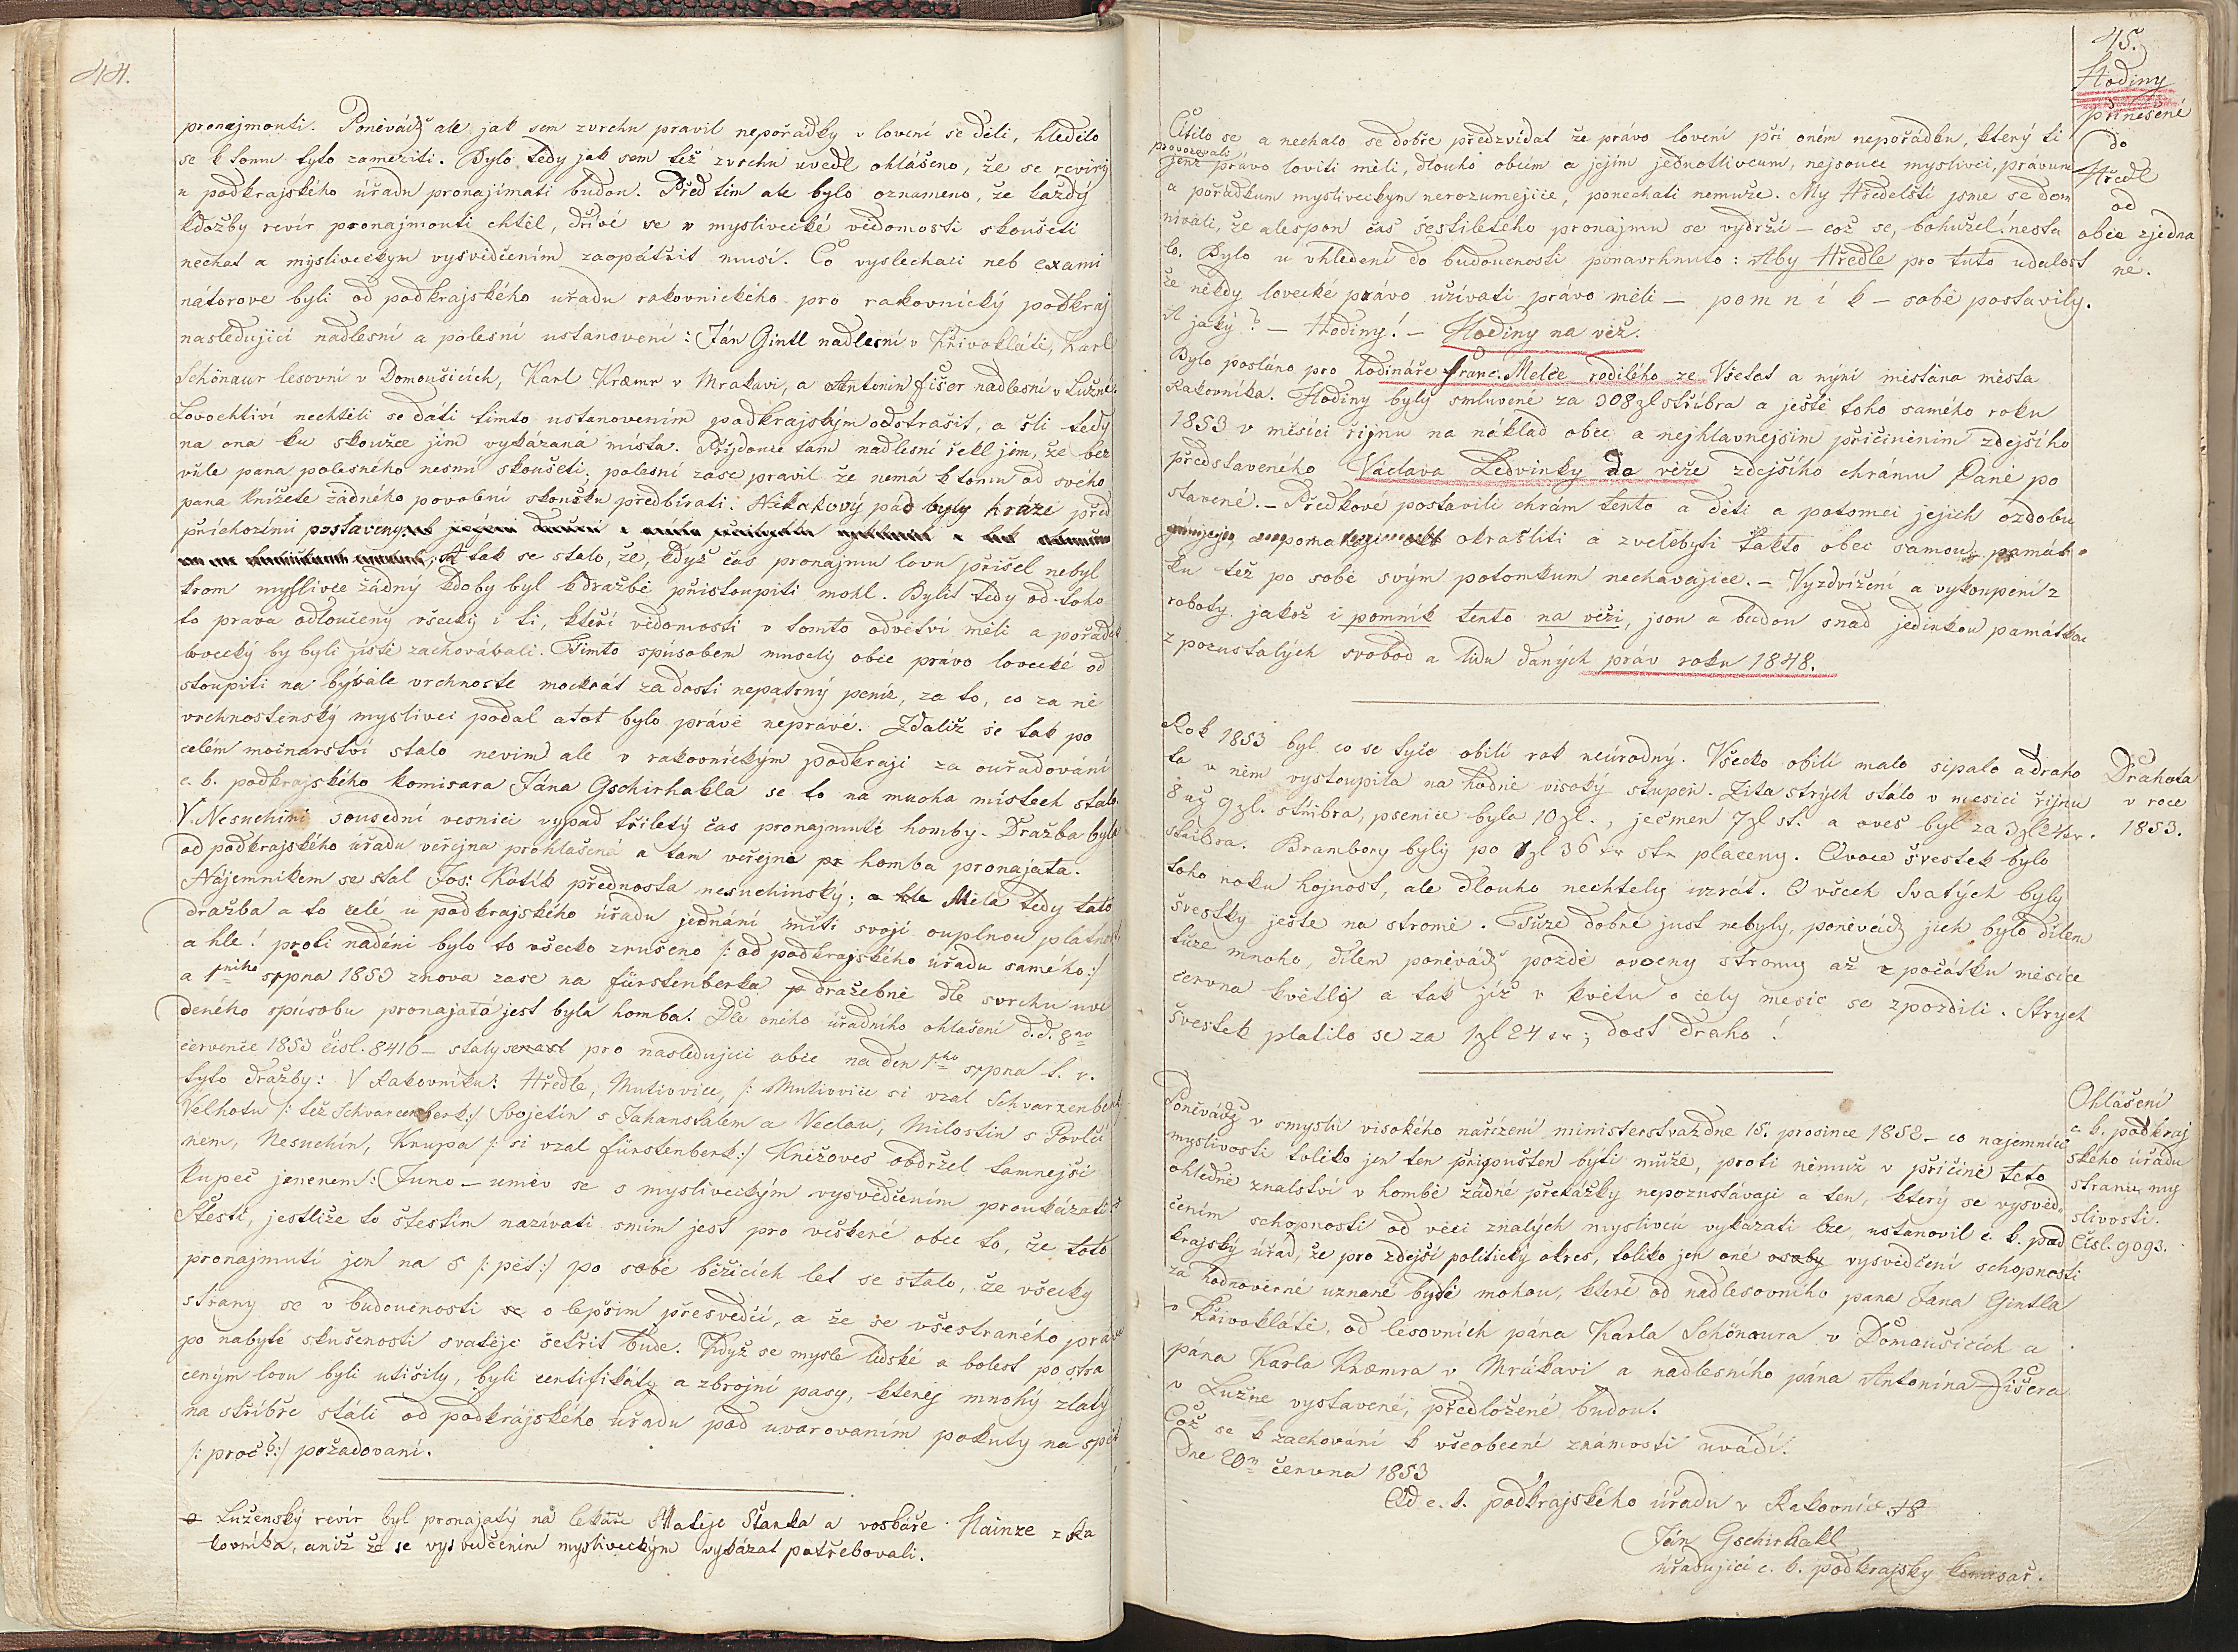 44.
pronejmouti. Poněvádž ale jak sem zvrchu pravil nepořadky v lovení se děli, hledělo
se k tomu tyto zameziti. Bylo tedy jak sem též zvrchu uvedl ohlášeno, že se reviry
u podkrajského úřadu pronajímati budou. Před tím ale bylo oznameno, že každý
kdožby revír pronajmouti chtěl, dřívé se v myslivecké vědomosti skoušeti
nechat a mysliveckym vysvědčením zaopátřit musí. Co vyslechaci neb exami
nátorove byli od podkrajského uřadu rakovnického pro rakovnický podkraj
nasledující nadlesní a polesní ustanovení: Ján Gintl nadlesní v Křivokláti, Karl
Schönaur lesovní v Domoušicích, Karl Kræmr v Mrakavi, a Antonin Fišer nadlesní v Lužné.
Lovochtiví nechtěli se dáti tímto ustanovením podkrajským odstrašit, a šli tedy
na ona ku skoušce jim vykázaná místa. Přijdouce tam nadlesní řekl jim, že bez
vůle pana polesného nesmí skoušeti; polesní zase pravil že nemá k tomu od svého
pana knížete žádného povolení skoušku předbírati. Nikakový pád byly hráze před
příchozími postaveny.
A tak se stalo, že, když čas pronajmu lovu přišel nebyl
krom myslivce žádný kdoby byl k dražbě přistoupiti mohl. Byli tedy od toho
to prava odloučeny všecky i ti, kteří vědomosti v tomto odvětví měli a pořádek
lovecký by byli jistě zachovávali. Tímto spusobem musely obce právo lovecké od
stoupiti na byvalé vrchnosti mockrát za dosti nepatrný peníz, za to, co za ně
vrchnostenský myslivci podal a tot bylo právě neprávé. Zdaliž se tak po
celém mocnarství stalo nevim ale v rakovnickým podkraji za ouřadování
c. k. podkrajského komisara Jána Gschirhakla se to na mnoha místech stalo.
V Nesuchini sousední vesnici vypad tříletý čas pronajmuté homby. Dražba byla
od podkrajského úřadu veřejna prohlašená a tam veřejně homba pronajata.
Nájemnikem se stal Jos: Kotík přednosta nesuchinský; Měla tedy tato
dražba a to celé u podkrajského úřadu jednání míti svojí ouplnou platnost
a hle! proti nadéni bylo to všecko zrušeno /: od podkrajského úřadu samého:/
a 1ního srpna 1853 znova zase na fürstenberka dražebně dle svrchu uve
deného spůsobu pronajatá jest byla homba. Dle oního úřadního ohlašení d.d. 8ho
červenice 1853 čísl. 8416 – staly se pro nasledujíci obce na den 1ho srpna t. r.
tyto dražby: V Rakovníku: Hředle, Mutiovice, /: Mutiovice si vzal Schvarzenberk
Velhotu /: též Schvarcenberk:/ Svojetín s Johanstalem a Veclau, Milostín s Povlči
nem, Nesuchín, Krupa /: si vzal fürstenberk:/ Kněžoves obdržel tamnejší
kupec jmenem: Juno – uměv se s mysliveckým vysvědčením proukázati.
Štestí, jestliže to štestim nazívati smím jest pro veškeré obce to, že toto
pronajmutí jen na 5 /: pět:/ po sobě běžících let se stalo, že všecky
strany se v budoucnosti o lepším přesvědčí, a že se všestraného práva
po nabyté skušenosti svatěje šetřit bude. Když se mysle lidské a bolest po stra
ceným lovu byli utišily, byli certifikáty a zbrojní pasy, kteréj mnohý zlatý
na stříbře stáli od podkrájského uřadu pod uvarovaním pokuty na spět
/: proč?:/ požadovaní.
Luženský revír byl pronajatý na lekaře Matěje Štanka a voskaře Hainze z Ra
kovníka, aniž že se vysvědčením mysliveckým vykázat potřebovali.
45.
Hodiny
přinešené
do
Hředl
od
obce zjedna
né.
Ctilo se a nechalo se dobře předzvídat že právo lovení při oném nepořádku, který ti
provozovali
jenž právo loviti měli, dlouho obcím a jejím jednotlivcum, nejsouce myslivci, právum
a pořádkum mysliveckym nerozumějíce, ponechati nemuže. My Hředelští jsme se dom
nívali, že alespon čas šestiletého pronajmu se vydrží – což se, bohužel! nesta
lo. Bylo u vhledení do budoucnosti ponavrhnuto: Aby Hředle pro tuto udalost
že někdy lovecké právo užívati právo měli – pomník – sobě postavily.
A jaký? – Hodiny! – Hodiny na věž.
Bylo posláno pro hodináře Franc. Melče rodilého ze Všetat a nýní městána města
Rakovníka. Hodiny byly smluvené za 308 zl stříbra a ještě toho samého roku
1853 v měsíci říjnu na náklad obce a nejhlavnejším přičiněním zdejšího
představeného Václava Ledvinky do věže zdejšího chrámu Páně po
stavené. – Předkové postavili chrám tento a děti a potomci jejich ozdobu
okrašliti a zvelebyti takto obci samou, památ
ku též po sobě svým potomkum nechávajíce. – Vyzdvížení a vykoupení z
roboty jakož i pomník tento na věži, jsou a budou snad jedinkou památkou
z pozustalých svobod a lidu daných práv roku 1848.
Drahota
v roce
1853.
Rok 1853 byl co se tyče obilí rok neúrodný. Všecko obilí malo sipalo a draho
ta v něm vystoupila na hodně visoký stupeň. Žita strych stálo v mesíci říjnu
8 až 9 zl. stříbra, psenice byla 10 zl., ječmen 7 zl st. a oves byl za 3 zl 24 kr.
stříbra. Brambory byly po 1 zl 36 kr str placeny. Ovoce švestek bylo
toho roku hojnost, ale dlouho nechtely uzrát. O všech Svatých byly
švestky ješte na stromě. Tuze dobré just nebyly, poněvádž jich bylo dílem
tuze mnoho, dílem poněvádž pozdě ovocny stromy až z počátku měsíce
června květly a tak jíž v květu o cely mesic se zpozdili. Strych
švestek platilo se za 1 zl 24 kr; dost draho!
Ohlášení
c. k. podkraj
ského úřadu
strany my
slivosti.
Čísl. 9093.
Poněvádž v smyslu visokého nařízení ministerstva dne 15. prosince 1852 – co najemníce
myslivosti toliko jen ten připouštěn býti může, proti němuž v příčině této
ohledně znalství v hombě žádné překážky nepozustávají a ten, který se vysvěd-
čením schopnosti od věci znalých myslivců vykázati lze, ustanovil c. k. pod
krajský úřad, že pro zdejší politický okres, toliko jen oné osoby vysvědčení schopnosti
za hodnověrné uznané býti mohou, které od nadlesovního pana Jana Gintla
v Křivokláti, od lesovních pána Karla Schönaura v Domaušicích a
pana Karla Kræmra v Mrákavi a nadlesního pána Antonína Fišera
v Lužne vystavené, předložené budou.
Což se k zachování k všeobecné známosti uvádí.
Dne 20ho června 1853
Od c. k. podkrajského úřadu v Rakovníce
Ján Gschirhakl
úřadující c. k. podkrajsky komisař.